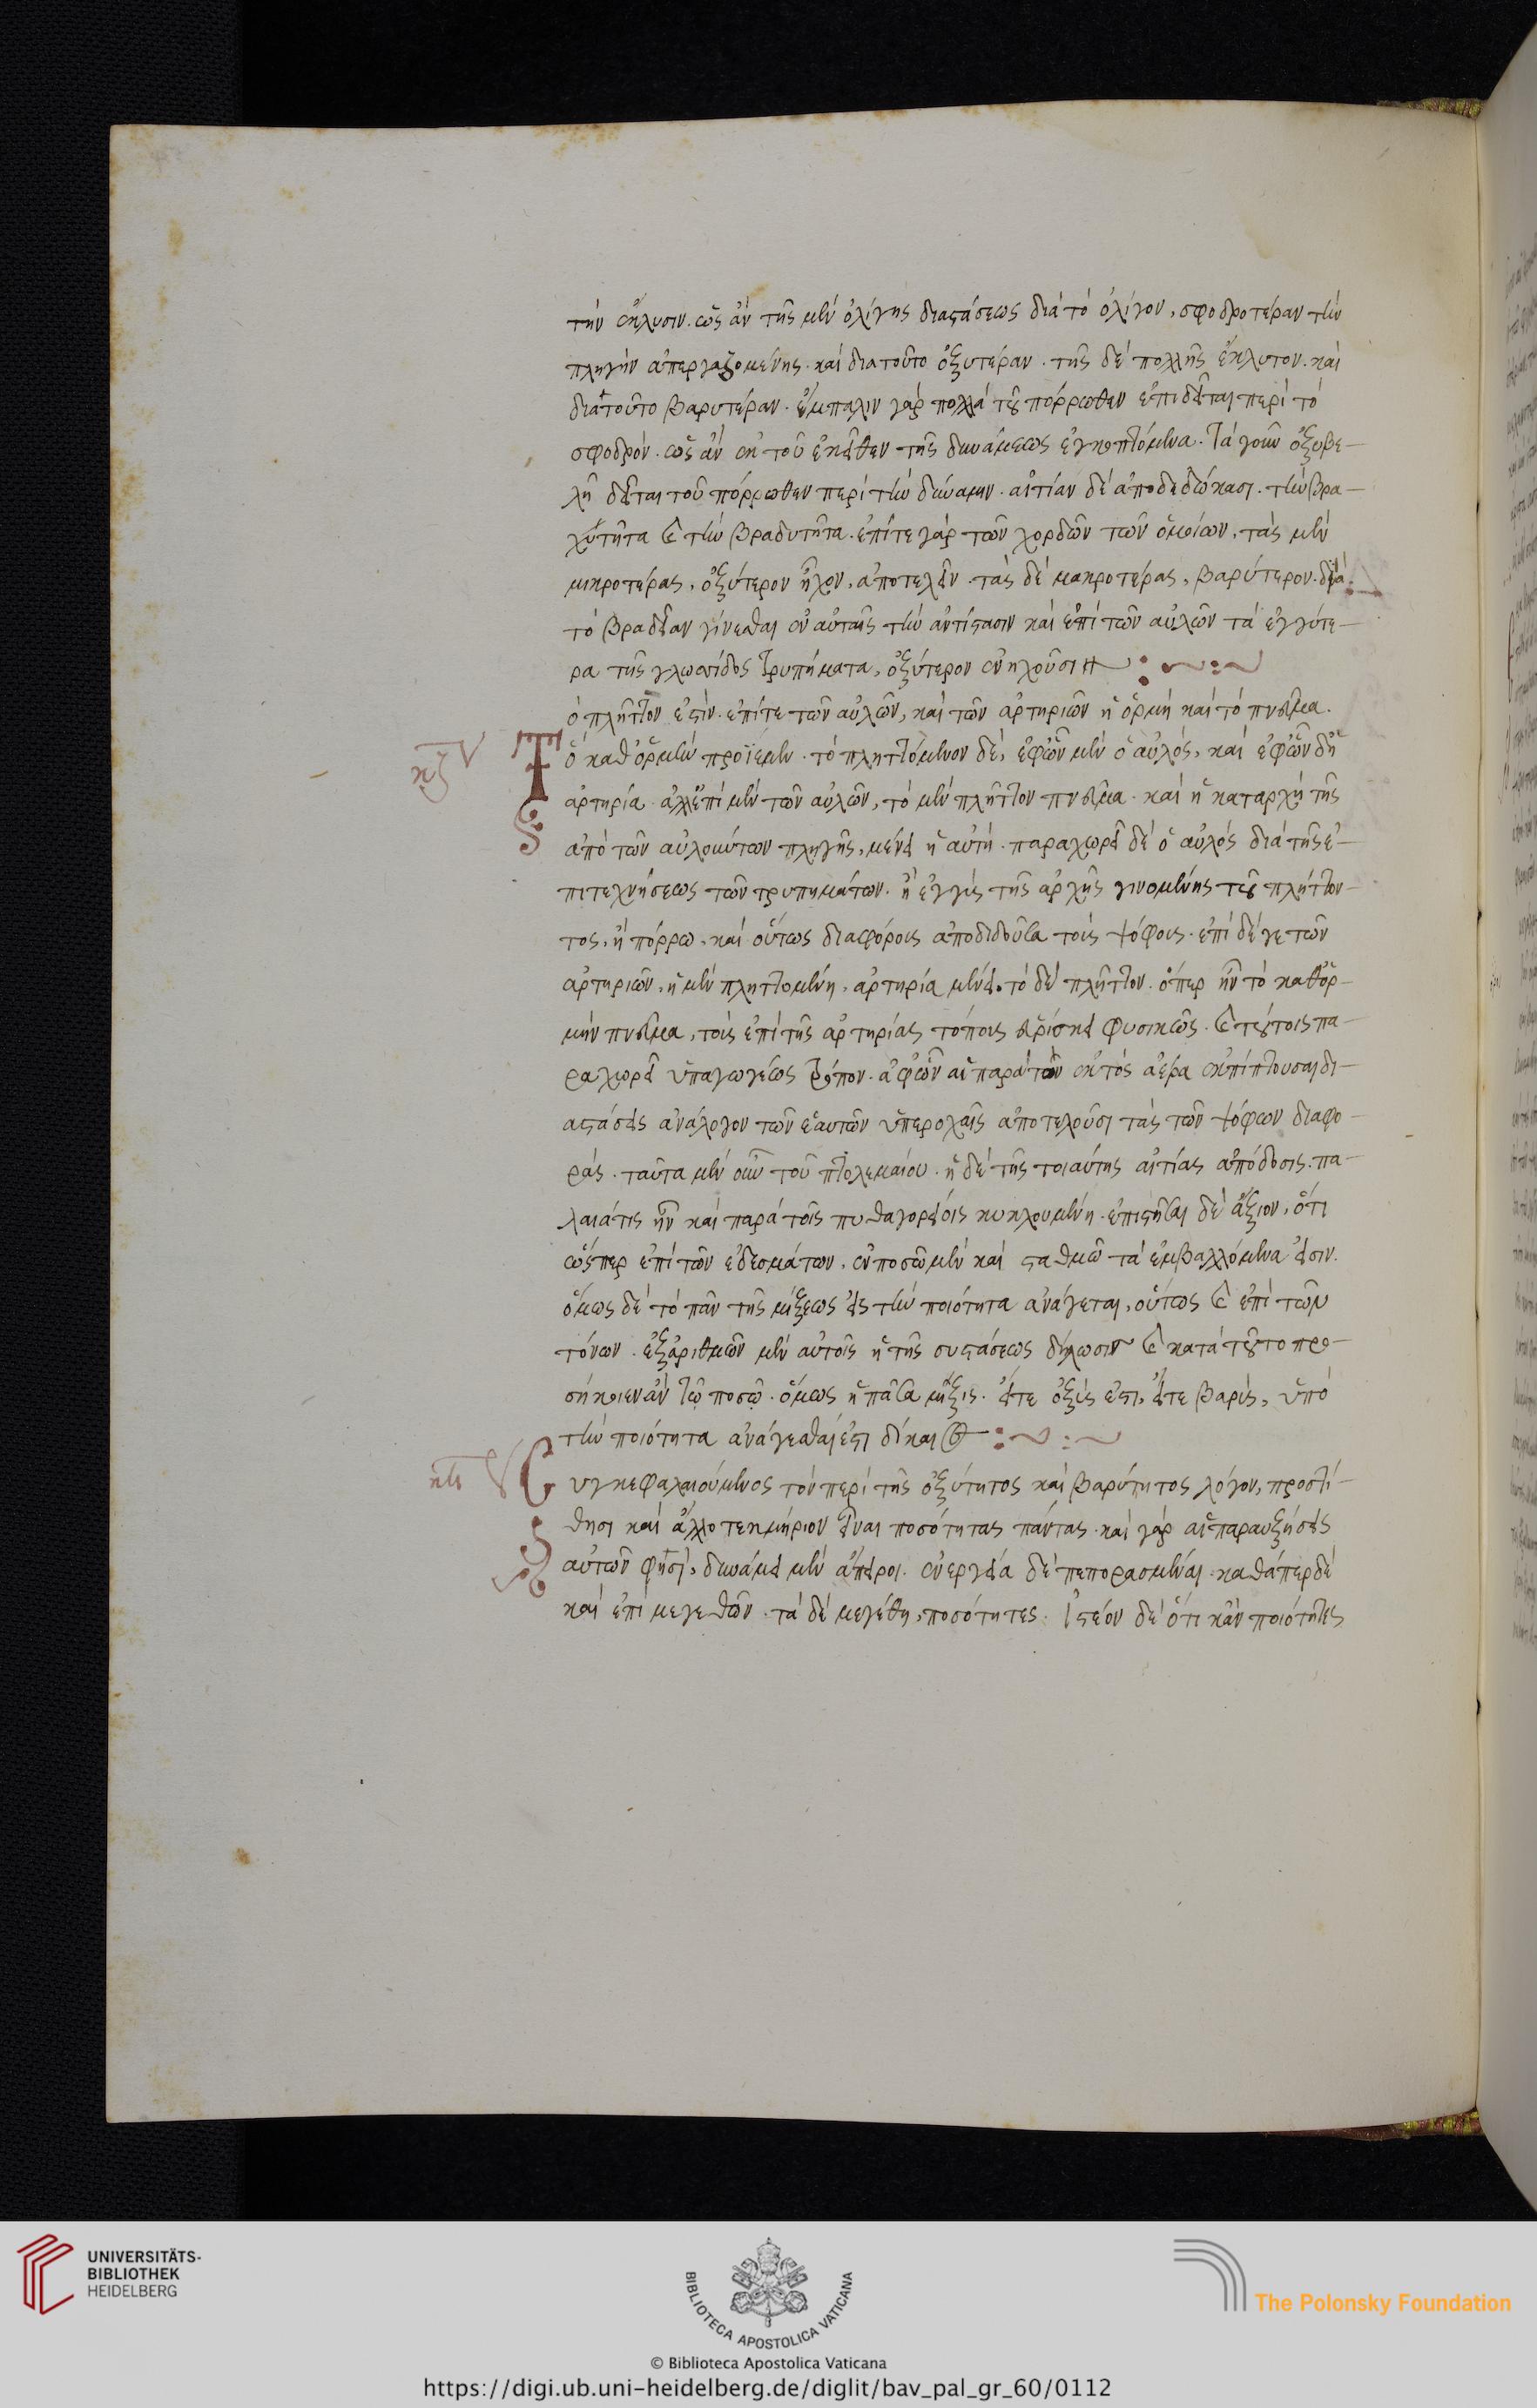 τὴν ἔκλυσιν. ὡς ἂν τῆς μὲν ὀλίγης διαστάσεως διὰ τὸ ὀλίγον, σφοδροτέραν τὴν
πληγὴν ἀπεργαζομένης. καὶ διατοῦτο ὀξυτέραν. τῆς δὲ πολλῆς ἔκλυτον. καὶ
διατοῦτο βαρυτέραν. ἔμπαλιν γὰρ πολλὰ τοῦ πόρρωθεν ἐπιδεῖται περὶ τὸ
σφοδρόν. ὡς ἂν ἐκ τοῦ ἐκεῖθεν τῆς δυνάμεως ἐγκοπτόμενα. τὰ γοῦν ὀξυβε-
λῆ δεῖται τοῦ πόρρωθεν περὶ τὴν δύναμιν. αἰτίαν δὲ ἀποδεδώκασι. τὴν βρα-
χύτητα καὶ τὴν βραδυτῆτα. ἐπί τε γὰρ τῶν χορδῶν τῶν ὁμοίων, τὰς μὲν
μικροτέρας, ὀξύτερον ἦχον, ἀποτελεῖν. τὰς δὲ μακροτέρας, βαρύτερον. διὰ
τὸ βραδεῖαν γίνεσθαι ἐν αὐταῖς τὴν ἀντίστασιν καὶ ἐπὶ τῶν αὐλῶν τὰ ἐγγύτε-
ρα τῆς γλωσσίδος τρυπήματα, ὀξύτερον ἐνηχοῦσι
ὁ πλῆττον ἐστὶν. ἐπί τε τῶν αὐλῶν, καὶ τῶν ἀρτηριῶν ἡ ὁρμὴ καὶ τὸ πνεῦμα.
κζ Τ ὃ καθ ὁρμὴν προϊέμεν. τὸ πληττόμενον δὲ, ἐφῶν μὲν ὁ αὐλός, καὶ ἐφῶν δὴ
ἀρτηρία. ἀλλ ἐπὶ μὲν τῶν αὐλῶν, τὸ μὲν πλῆττον πνεῦμα. καὶ ἡ καταρχὴ τῆς
ἀπὸ τῶν αὐλούντων πληγῆς, μένει ἡ αὐτή. παραχωρεῖ δὲ ὁ αὐλός διὰ τῆς ἐ-
πιτεχνήσεως τῶν τρυπημάτων. ἢ ἐγγὺς τῆς ἀρχῆς γινομένης τοῦ πλήττον-
τος, ἢ πόρρω. καὶ οὕτως διαφόρους ἀποδιδοῦσα τοὺς ψόφους. ἐπὶ δέ γε τῶν
ἀρτηριῶν, ἡ μὲν πληττομένη, ἀρτηρία μένει. τὸ δὲ πλῆττον. ὅπερ ἦν τὸ καθ ὁρ-
μὴν πνεῦμα, τοὺς ἐπὶ τῆς ἀρτηρίας τόπους εὑρίσκει φυσικῶς. καὶ τούτοις πα-
ραχωρεῖ ὑπαγωγέως τρόπον. ἀφ ὧν αἱ παρὰ τὸν ἐκτὸς ἀέρα ἐκπίπτουσαι δι-
αστάσεις ἀνάλογον τῶν ἑαυτῶν ὑπεροχαῖς ἀποτελοῦσι τὰς τῶν ψόφων διαφο-
ράς. ταῦτα μὲν οὖν τοῦ πτολεμαίου. ἡ δὲ τῆς τοιαύτης αἰτίας ἀπόδοσις. πα-
λαιά τις ἦν καὶ παρὰ τοῖς πυθαγορείοις κυκλουμένη. ἐπιστῆσαι δὲ ἄξιον, ὅτι
ὥσπερ ἐπὶ τῶν ἐδεσμάτων. ἐν ποσῶ μὲν καὶ σταθμῶ τὰ ἐμβαλλόμενα εἰσιν.
ὅμως δὲ τὸ πᾶν τῆς μίξεως εἰς τὴν ποιότητα ἀνάγεται, οὕτως καὶ ἐπὶ τῶν
τόνων. ἐξ ἀριθμῶν μὲν αὐτοῖς ἡ τῆς συστάσεως δήλωσις καὶ κατὰ τοῦτο προ-
σήκοιεν ἂν τῷ ποσῷ. ὅμως ἡ πᾶσα μῖξις. εἴτε ὀξὺς ἐστι, εἴτε βαρὺς, ὑπὸ
τὴν ποιότητα ἀνάγεσθαί ἐστι δίκαιος
κη Συγκεφαλαιούμενος τὸν περὶ τῆς ὀξύτητος καὶ βαρύτητος λόγον, προστί-
θησι καὶ ἄλλο τεκμήριον εἶναι ποσότητας πάντας. καὶ γὰρ αἱ παραυξήσεις
αὐτῶν φησὶ, δυνάμει μὲν ἄπειροι. ἐνεργεία δὲ πεπερασμέναι. καθάπερ δὲ
καὶ ἐπὶ μεγεθῶν. τὰ δὲ μεγέθη, ποσότητες. ἰστέον δὲ ὅτι κἂν ποιότητες
UNIVERSITÄTS-
BIBLIOTHEK
HEIDELBERG
BIBLIOTECA APOSTOLICA VATICANA
The Polonsky Foundation
© Biblioteca Apostolica Vaticana
https://digi.ub.uni-heidelberg.de/diglit/bav_pal_gr_60/0112